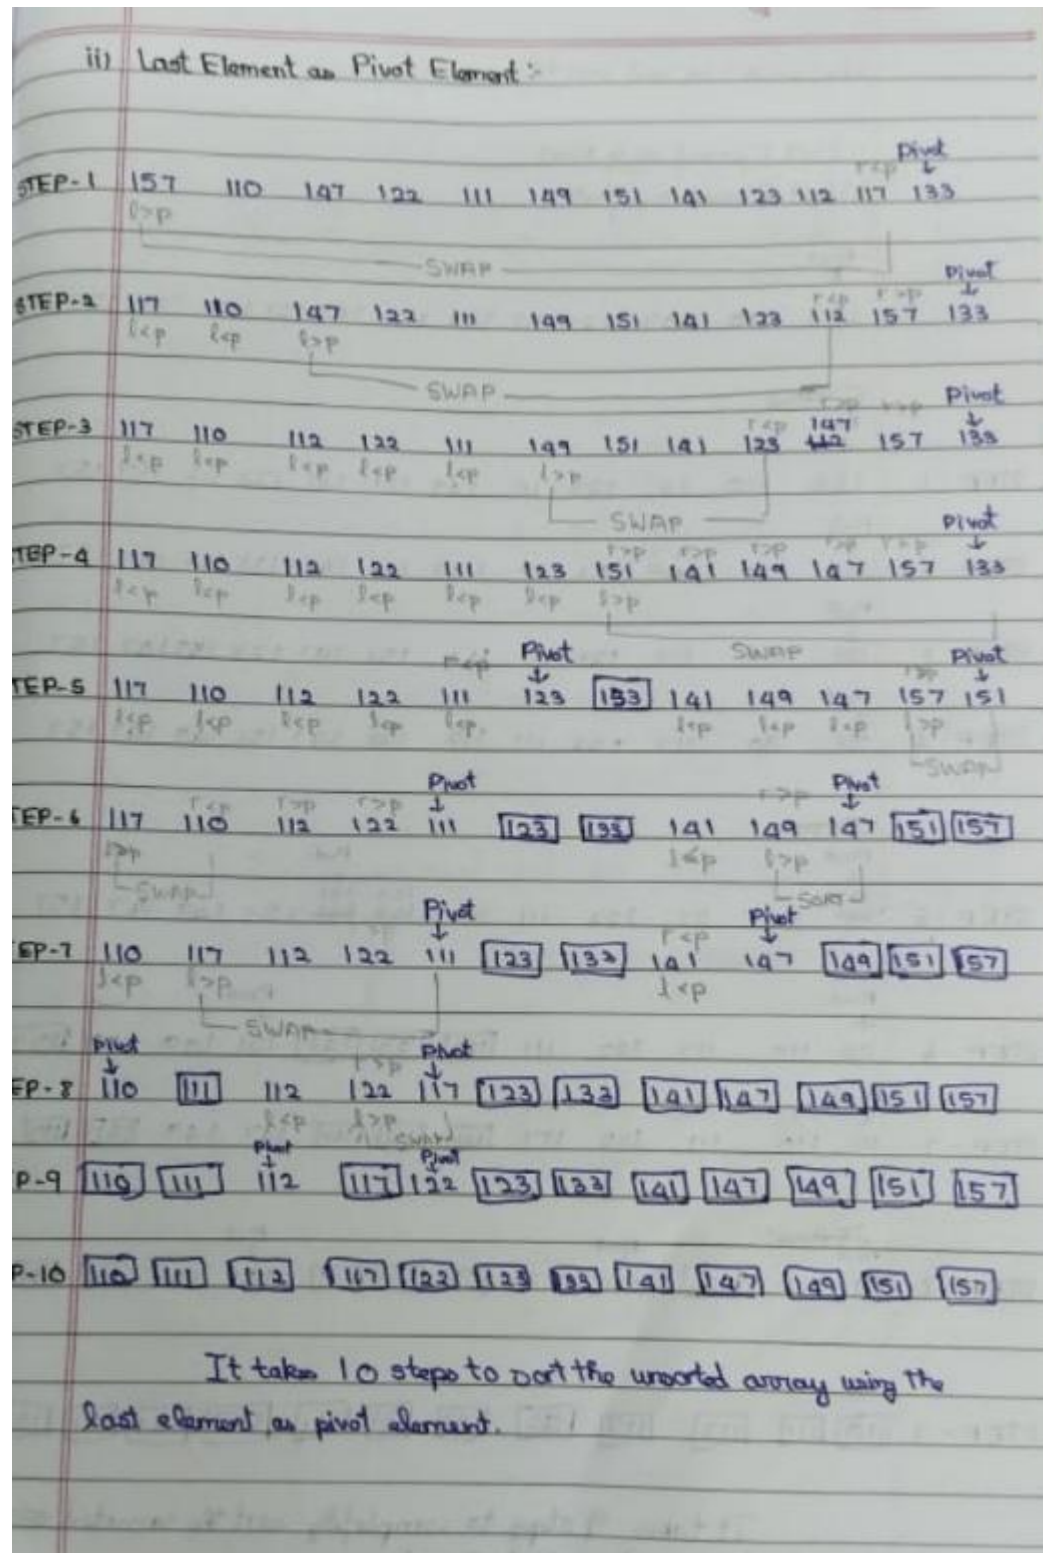 ii) Last Element as Pivot Element :-
Pivot
r<p ↓
STEP-1 157 110 147 122 111 149 151 141 123 112 117 133
l>p
SWAP
Pivot
r<p r>p ↓
STEP-2 117 110 147 122 111 149 151 141 123 112 157 133
l<p l<p l>p
SWAP
Pivot
r<p r>p r>p ↓
147
STEP-3 117 110 112 122 111 149 151 141 123 112 157 133
l<p l<p l<p l<p l<p l>p
SWAP
Pivot
r>p r>p r>p r>p r>p ↓
TEP-4 117 110 112 122 111 123 151 141 149 147 157 133
l<p l<p l<p l<p l<p l<p l>p
Pivot SWAP Pivot
r<p ↓ r>p ↓
TEP-5 117 110 112 122 111 123 133 141 149 147 157 151
l<p l<p l<p l<p l<p l<p l<p l<p l>p
SWAP
Pivot Pivot
r<p r>p r>p ↓ r>p ↓
TEP-6 117 110 112 122 111 123 133 141 149 147 151 157
l>p l<p l>p
SWAP
Pivot Pivot
↓ r<p ↓
EP-7 110 117 112 122 111 123 133 141 147 149 151 157
l<p l>p l<p
SWAP
Pivot Pivot
↓ r>p ↓
EP-8 110 111 112 122 117 123 133 141 147 149 151 157
l<p l>p SWAP
Pivot Pivot
P-9 110 111 112 117 122 123 133 141 147 149 151 157
P-10 110 111 112 117 122 123 133 141 147 149 151 157
It takes 10 steps to sort the unsorted array using the
last element as pivot element.